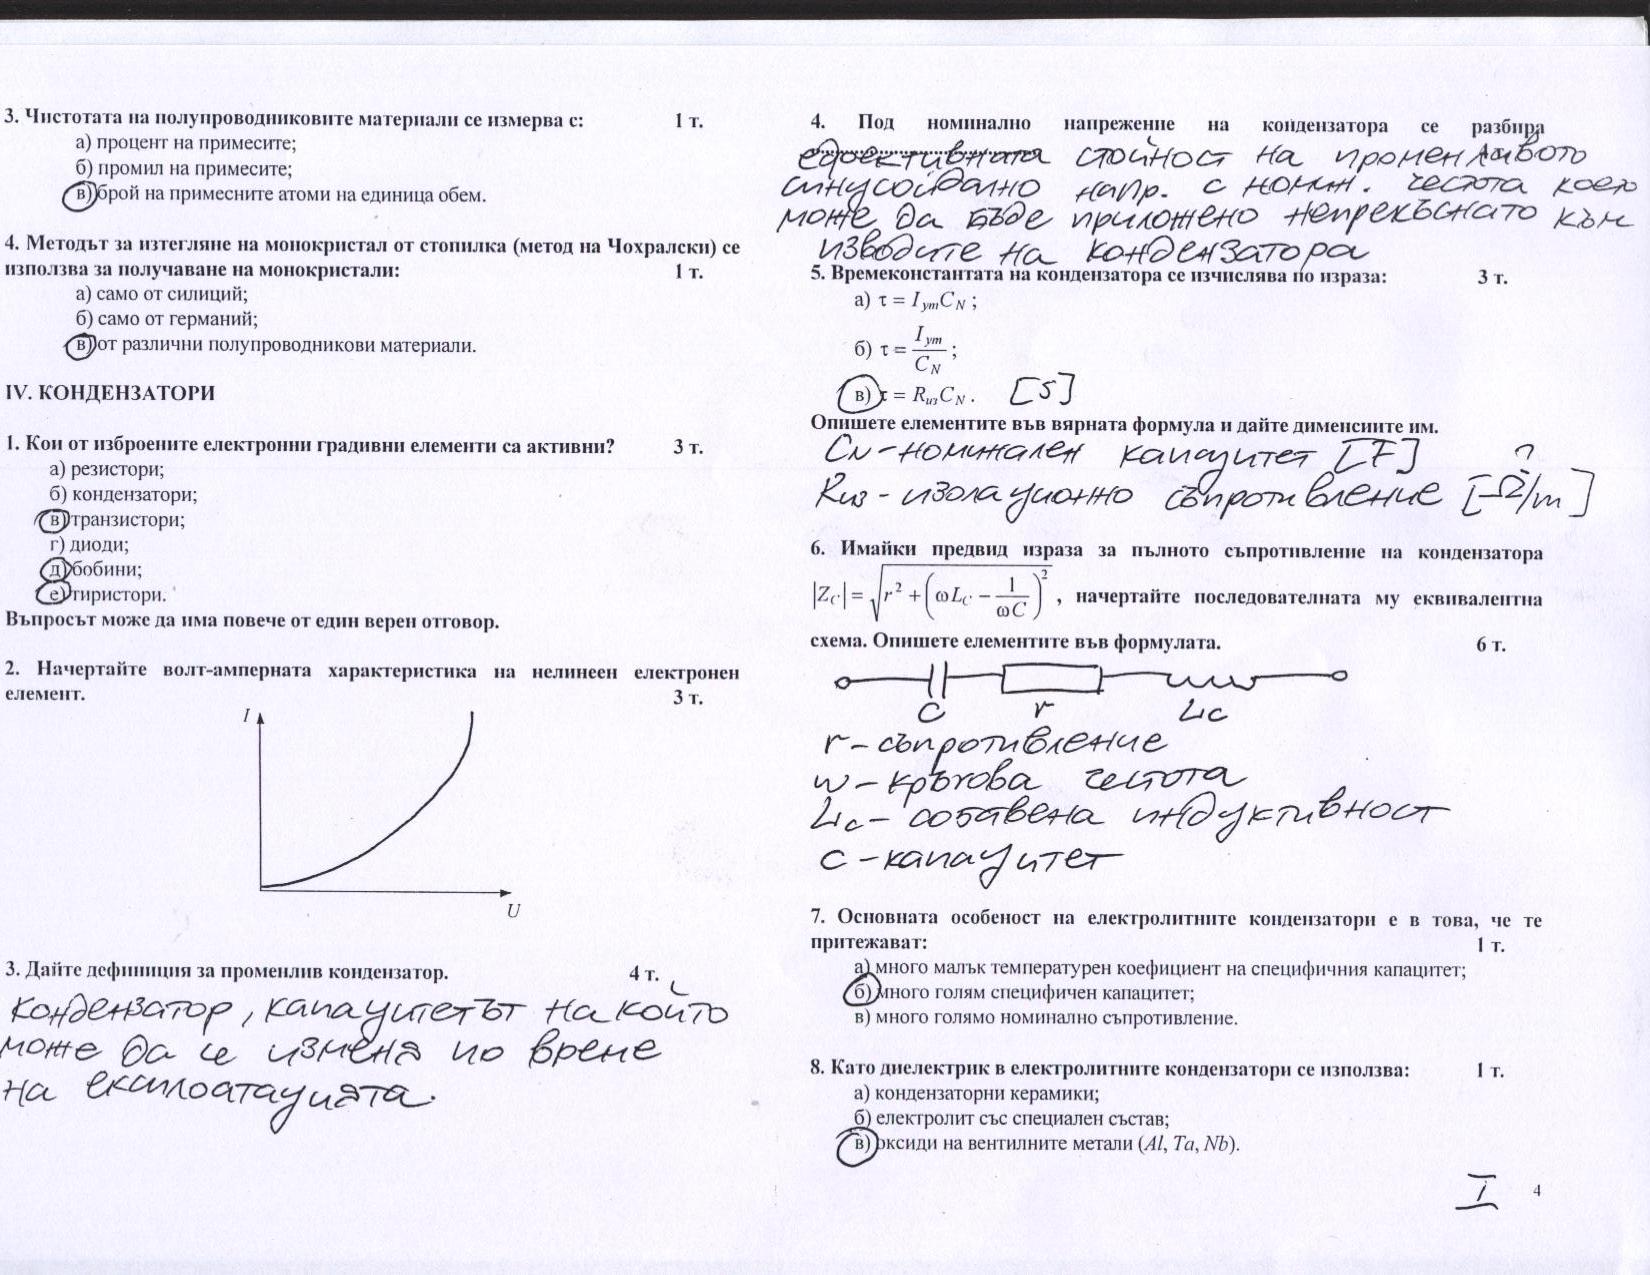 3. Чистотата на полупроводниковите материали се измерва с: 1 т.
а) процент на примесите;
б) промил на примесите;
в) брой на примесните атоми на единица обем.
4. Методът за изтегляне на монокристал от стопилка (метод на Чохралски) се
използва за получаване на монокристали: 1 т.
а) само от силиций;
б) само от германий;
в) от различни полупроводникови материали.
IV. КОНДЕНЗАТОРИ
1. Кои от изброените електронни градивни елементи са активни? 3 т.
а) резистори;
б) кондензатори;
в) транзистори;
г) диоди;
д) бобини;
е) тиристори.
Въпросът може да има повече от един верен отговор.
2. Начертайте волт-амперната характеристика на нелинеен електронен
елемент. 3 т.
I
U
3. Дайте дефиниция за променлив кондензатор. 4 т.
Кондензатор, капацитетът на който
може да се изменя по време
на експлоатацията.
4. Под номинално напрежение на кондензатора се разбира
ефективната стойност на променливото
синусоидално напр. с номин. честота което
може да бъде приложено непрекъснато към
изводите на кондензатора
5. Времеконстантата на кондензатора се изчислява по израза: 3 т.
а) τ = I_ут C_N ;
б) τ = I_ут / C_N ;
в) τ = R_из C_N . [S]
Опишете елементите във вярната формула и дайте дименсиите им.
C_N - номинален капацитет [F]
R_из - изолационно съпротивление [Ω/m] ?
6. Имайки предвид израза за пълното съпротивление на кондензатора
|Z_C| = √(r² + (ωL_C − 1/ωC)²) , начертайте последователната му еквивалентна
схема. Опишете елементите във формулата. 6 т.
C r L_C
r - съпротивление
ω - кръгова честота
L_C - собствена индуктивност
C - капацитет
7. Основната особеност на електролитните кондензатори е в това, че те
притежават: 1 т.
а) много малък температурен коефициент на специфичния капацитет;
б) много голям специфичен капацитет;
в) много голямо номинално съпротивление.
8. Като диелектрик в електролитните кондензатори се използва: 1 т.
а) кондензаторни керамики;
б) електролит със специален състав;
в) оксиди на вентилните метали (Al, Ta, Nb).
I 4